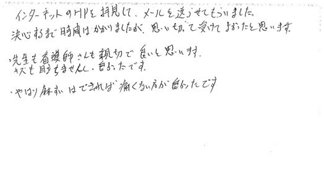 インターネットのHPを拝見して、メールを送らせてもらいました。
決心するまで時間はかかりましたが、思い切って受けてよかったと思います。
・先生も看護師さんも親切で良いと思います。
も目もちませんし、良かったです。
・やはり麻酔はできれば痛くない方が良かったです